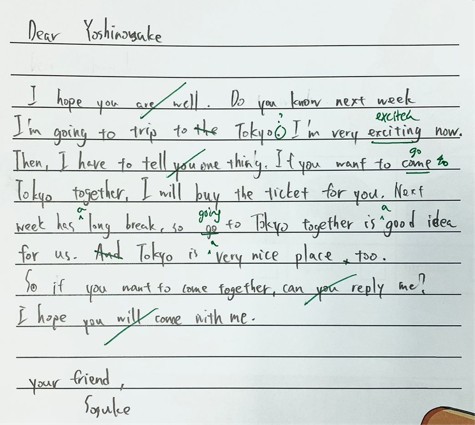 Dear Yoshinosuke
I hope you are well. Do you know next week
?
excited
I'm going to trip to the Tokyo. I'm very exciting now.
go
Then, I have to tell you one thing. If you want to come to
Tokyo together, I will buy the ticket for you. Next
a going a
week has long break, so go to Tokyo together is good idea
a
for us. And Tokyo is very nice place, too.
So if you want to come together, can you reply me?
I hope you will come with me.
your friend,
Sosuke